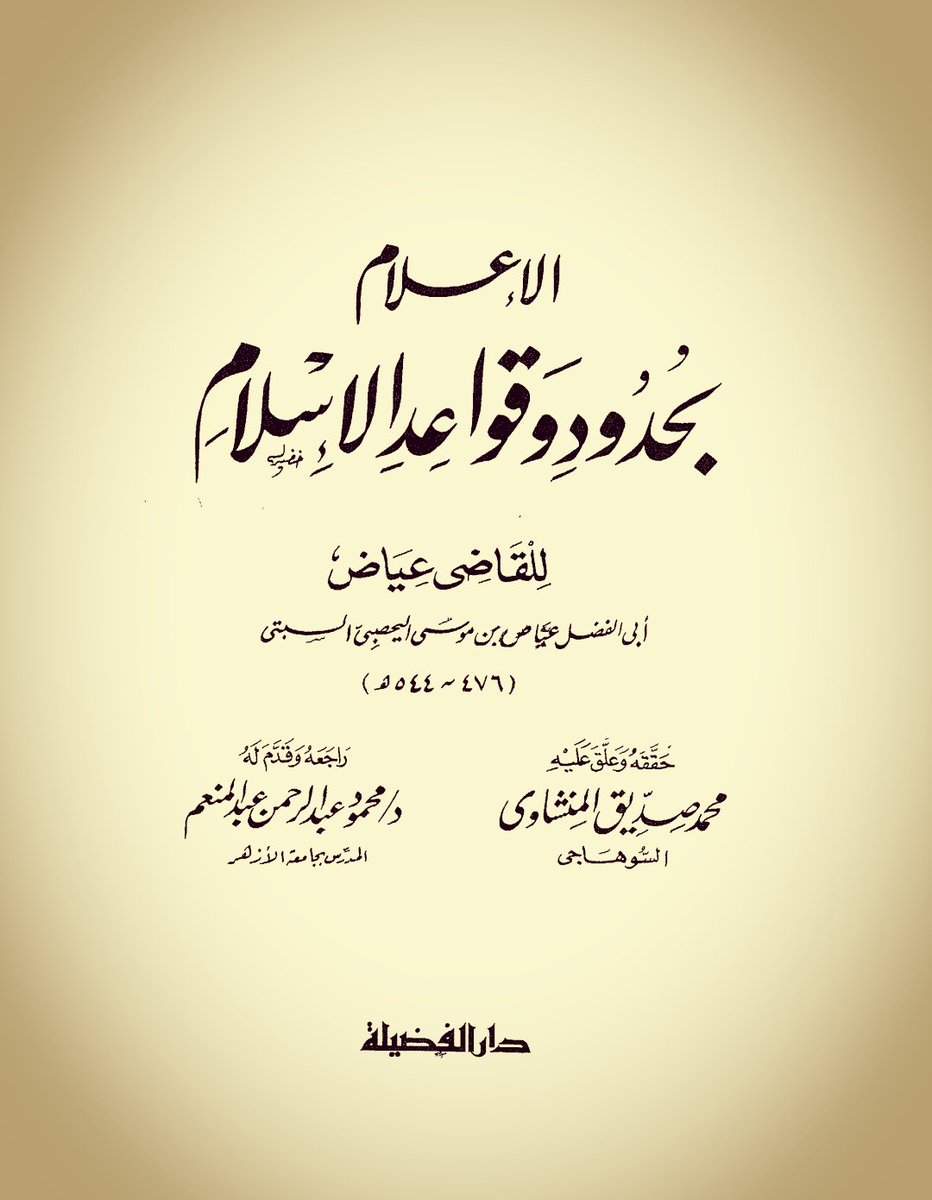 الإعلام
بحُدُودِ وَقواعِدِ الإِسْلامِ
خضير
لِلْقَاضِى عِيَاضْ
أبى الفضل عياض بن موسى اليحصبىّ السبتى
(٤٧٦ ~ ٥٤٤ ه)
حَقَّقَهُ وَعَلَّقَ عَلَيْهِ
محمد صِدِّيق المِنشاوى
السُّوهاجى
رَاجَعَهُ وَقَدَّمَ لَهُ
د/محمود عبد الرحمن عبد المنعم
المدرّس بجامعة الأزهر
دار الفضيلة